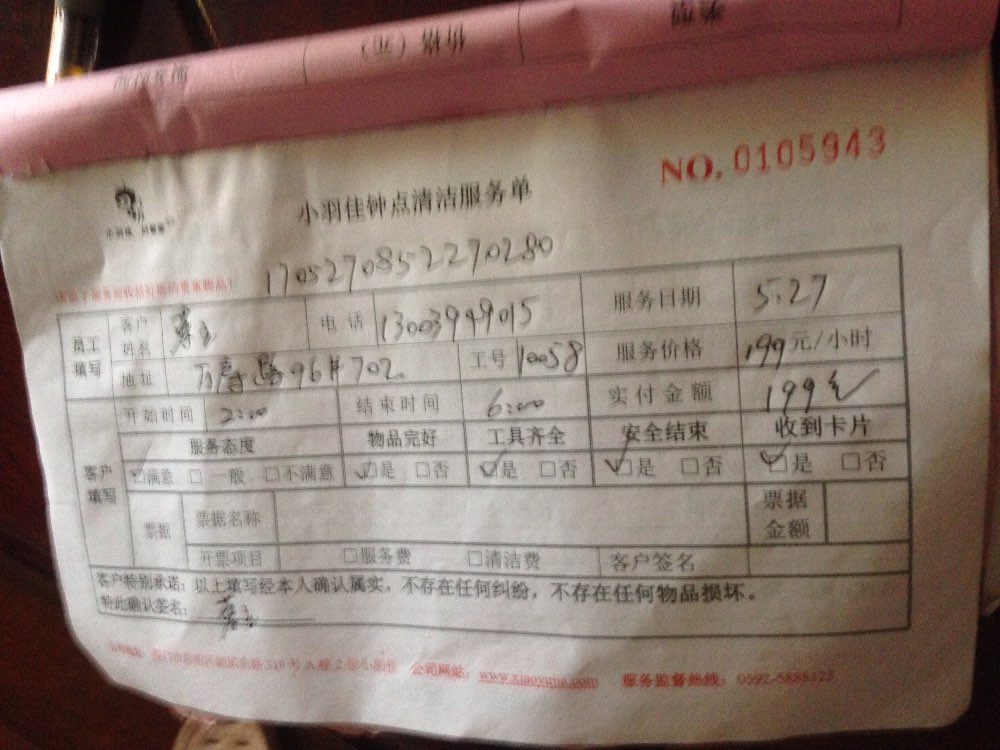 类型
价格（元）
NO. 0105943
小羽佳钟点清洁服务单
1705270852270280
员工填写 客户姓名 电话 13003949015 服务日期 5.27
地址 万寿路96#702 工号 10058 服务价格 199元/小时
客户填写 开始时间 2:00 结束时间 6:00 实付金额 199元
服务态度 物品完好 工具齐全 安全结束 收到卡片
☑满意 □一般 □不满意 ☑是 □否 ☑是 □否 ☑是 □否 ☑是 □否
票据 票据名称 票据金额
开票项目 □服务费 □清洁费 客户签名
客户特别承诺：以上填写经本人确认属实，不存在任何纠纷，不存在任何物品损坏。
特此确认签名：
公司网站：www.xiaoyujia.com 服务监督热线：0592-5888123